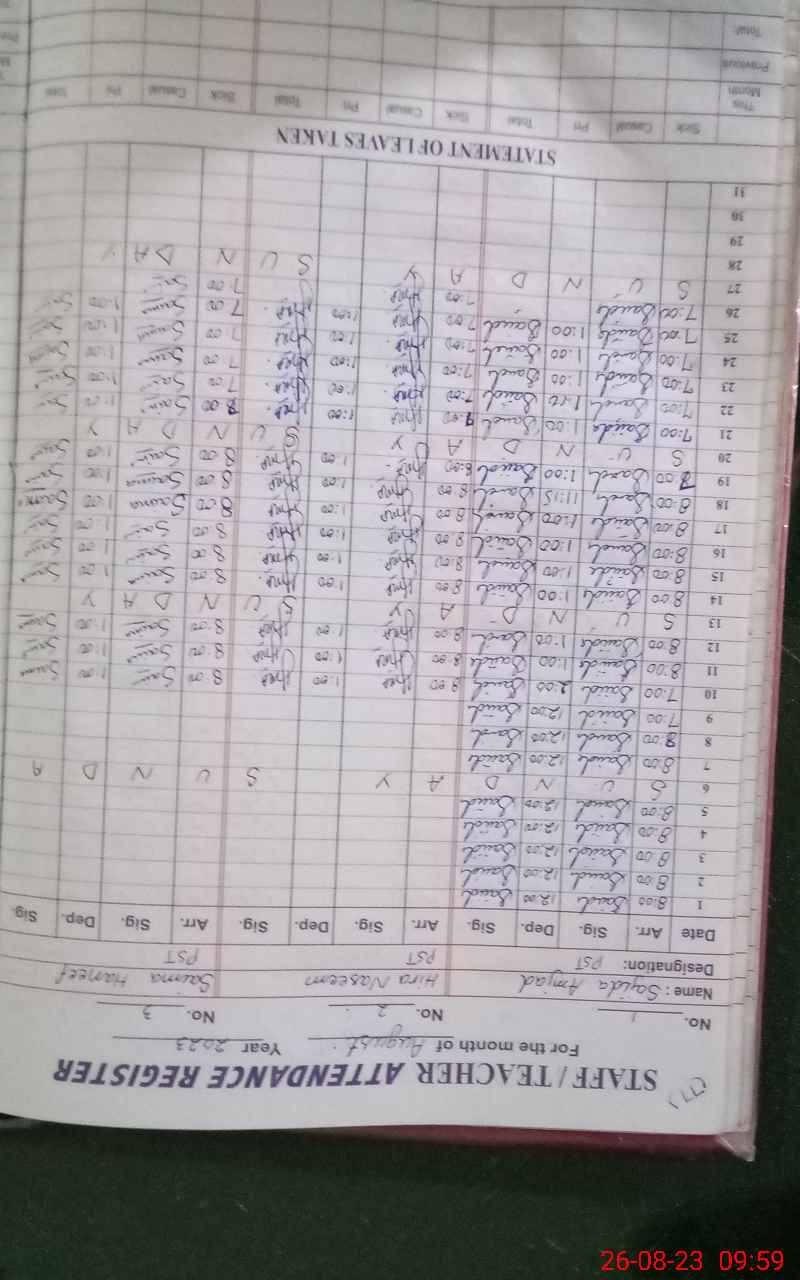 (17)
STAFF / TEACHER ATTENDANCE REGISTER
For the month of August Year 2023
No. 1 No. 2 No. 3
Name : Sajida Amjad Hira Naseem Saima Haneef
Designation: PST PST PST
Date Arr. Sig. Dep. Sig. Arr. Sig. Dep. Sig. Arr. Sig. Dep. Sig.
1 8:00 Sajida 12:00 Sajida
2 8:00 Sajida 12:00 Sajida
3 8:00 Sajida 12:00 Sajida
4 8:00 Sajida 12:00 Sajida
5 8:00 Sajida 12:00 Sajida
6 S U N D A Y S U N D A
7 8:00 Sajida 12:00 Sajida
8 8:00 Sajida 12:00 Sajida
9 7:00 Sajida 12:00 Sajida
10 7:00 Sajida 2:00 Sajida 8:00 1:00 8:00 Saima 1:00 Saima
11 8:00 Sajida 1:00 Sajida 8:00 1:00 8:00 Saima 1:00 Saima
12 8:00 Sajida 1:00 Sajida 8:00 1:00 8:00 Saima 1:00 Saima
13 S U N D A Y S U N D A Y
14 8:00 Sajida 1:00 Sajida 8:00 1:00 8:00 Saima 1:00 Saima
15 8:00 Sajida 1:00 Sajida 8:00 1:00 8:00 Saima 1:00 Saima
16 8:00 Sajida 1:00 Sajida 8:00 1:00 8:00 Saima 1:00 Saima
17 8:00 Sajida 1:00 Sajida 8:00 1:00 8:00 Saima 1:00 Saima
18 8:00 Sajida 11:15 Sajida 8:00 1:00 8:00 Saima 1:00 Saima
19 8:00 Sajida 1:00 Sajida 8:00 1:00 8:00 Saima 1:00 Saima
20 S U N D A Y S U N D A Y
21 7:00 Sajida 1:00 Sajida 7:00 1:00 8:00 Saima 1:00 Saima
22 7:00 Sajida 1:00 Sajida 7:00 1:00 7:00 Saima 1:00 Saima
23 7:00 Sajida 1:00 Sajida 7:00 1:00 7:00 Saima 1:00 Saima
24 7:00 Sajida 1:00 Sajida 7:00 1:00 7:00 Saima 1:00 Saima
25 7:00 Sajida 1:00 Sajida 7:00 1:00 7:00 Saima 1:00 Saima
26 7:00 Sajida 7:00 7:00 Saima
27 S U N D A Y S U N D A Y
28
29
30
31
STATEMENT OF LEAVES TAKEN
Sick Casual Pri Total Sick Casual Pri Total Sick Casual Pri Total
This Month
Previous
Total:
26-08-23 09:59